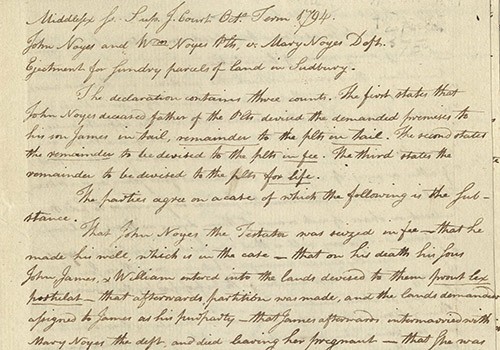 Middlesex ss. Sup. J. Court Octr Term 1794.
John Noyes and Wm Noyes Plts, v. Mary Noyes Deft.
Ejectment for sundry parcels of land in Sudbury.
The declaration contains three counts. The first states that
John Noyes deceased father of the Plts devised the demanded premises to
his son James in tail, remainder to the plts in tail. The second states
the remainder to be devised to the plts in fee. The third states the
remainder to be devised to the plts for life.
The parties agree on a case of which the following is the sub-
stance.
That John Noyes the Testator was seized in fee — that he
made his will, which is in the case — that on his death his sons
John, James, & William entered into the lands devised to them prout lex
postulat — that afterwards partition was made, and the lands demanded
assigned to James as his purparty — that James afterwards intermarried with
Mary Noyes the deft, and died leaving her pregnant — that she was